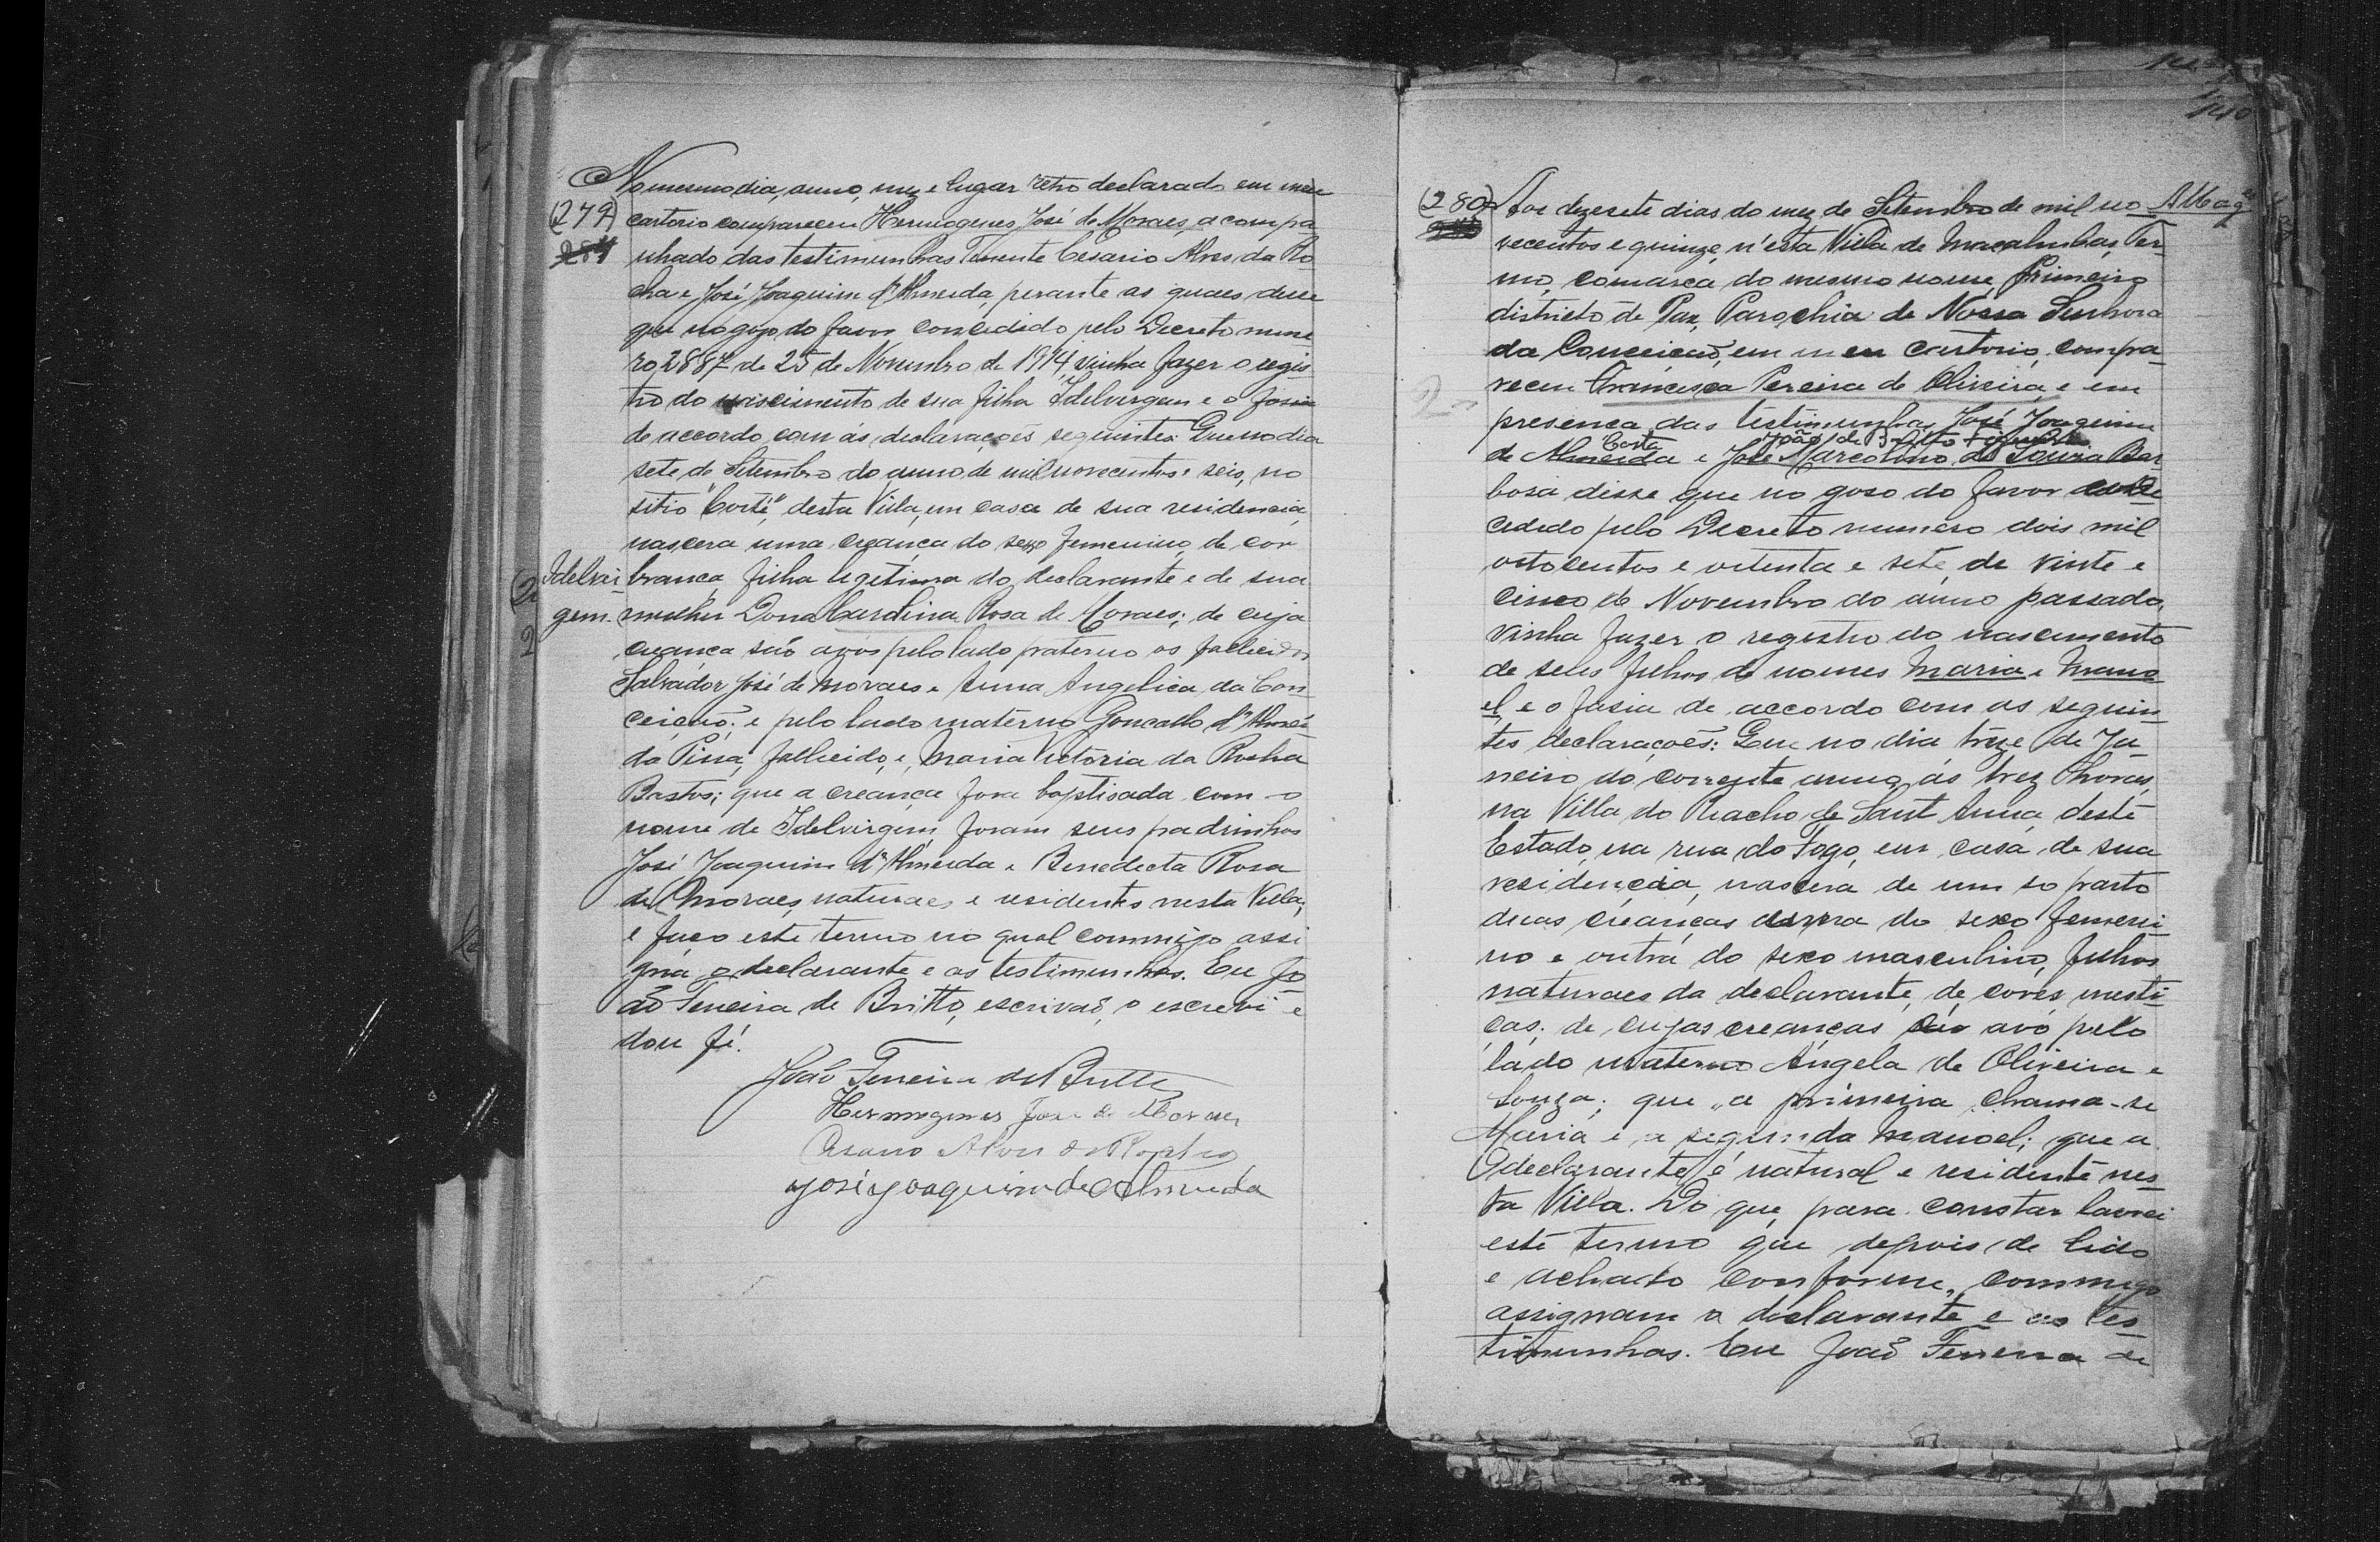 No mesmo dia, anno, mez e lugar retro declarado em meu
(279) cartorio compareceu Hermogenes José de Moraes, acompa-
281 nhado das testimunhas Tenente Cesario Alves da Ro-
cha e José Joaquim d'Almeida, perante as quaes disse
que no gozo do favor concedido pelo Decreto nume-
ro 2887 de 25 de Novembro de 1914, vinha fazer o regis-
tro do nascimento de sua filha Idelvirgem e o fasia
de accordo com as declarações seguintes: Que no dia
sete de Setembro do anno de mil novecentos e seis, no
sitio desta Villa, em casa de sua residencia,
nascera uma creança do sexo femenino, de cor
Idelvir- branca, filha legitima do declarante e de sua
gem. mulher Dona Carolina Rosa de Moraes; de cuja
creança são avos pelo lado paterno os fallecidos
Salvador José de Moraes e Anna Angelica da Con-
ceição; e pelo lado materno Goncallo d'Almei-
da Pina, fallecido, e Maria Victoria da Rocha
Bastos; que a creança fora baptisada com o
nome de Idelvirgem, foram seus padrinhos
José Joaquim d'Almeida e Benedicta Rosa
de Moraes, naturaes e residentes nesta Villa;
e faço este termo no qual commigo assi-
gna o declarante e as testimunhas. Eu Jo-
ão Ferreira de Britto, escrivão, o escrevi e
dou fé.
João Ferreira de Britto
Hermogenes José de Moraes
Cesario Alves da Rocha
José Joaquim de Almeida
140
(280) Aos dezesete dias do mez de Setembro de mil no-
vecentos e quinze, n'esta Villa de Macahubas, Ter-
mo, comarca do mesmo nome, Primeiro
districto de Paz, Parochia de Nossa Senhora
da Conceição, em meu cartorio, compa-
receu Francisca Pereira de Oliveira, e em
presença das testimunhas José Joaquim
Costa João de Britto
de Almeida e José Marcolino de Souza Bar-
bosa disse que no goso do favor con-
cedido pelo Decreto numero dois mil
oitocentos e oitenta e sete de vinte e
cinco de Novembro do anno passado,
vinha fazer o registro do nascimento
de seus filhos de nomes Maria e Mano-
el, e o fasia de accordo com as seguin-
tes declarações: Que no dia treze de Ja-
neiro do corrente anno, ás trez horas,
na Villa do Riacho de Sant'Anna, deste
Estado, na rua do Fogo, em casa de sua
residencia, nascera de um so parto
duas creanças uma do sexo femeni-
no e outra do sexo masculino, filhos
naturaes da declarante, de cores mesti-
ças; de cujas creanças avó pelo
lado materno Angela de Oliveira e
Souza; que a primeira chama-se
Maria e a segunda Manoel; que a
declarante é natural e residente nes-
ta Villa. Do que, para constar lavrei
este termo que depois de lido
e achado conforme, commigo
assignam a declarante e as tes-
timunhas. Eu João Ferreira de